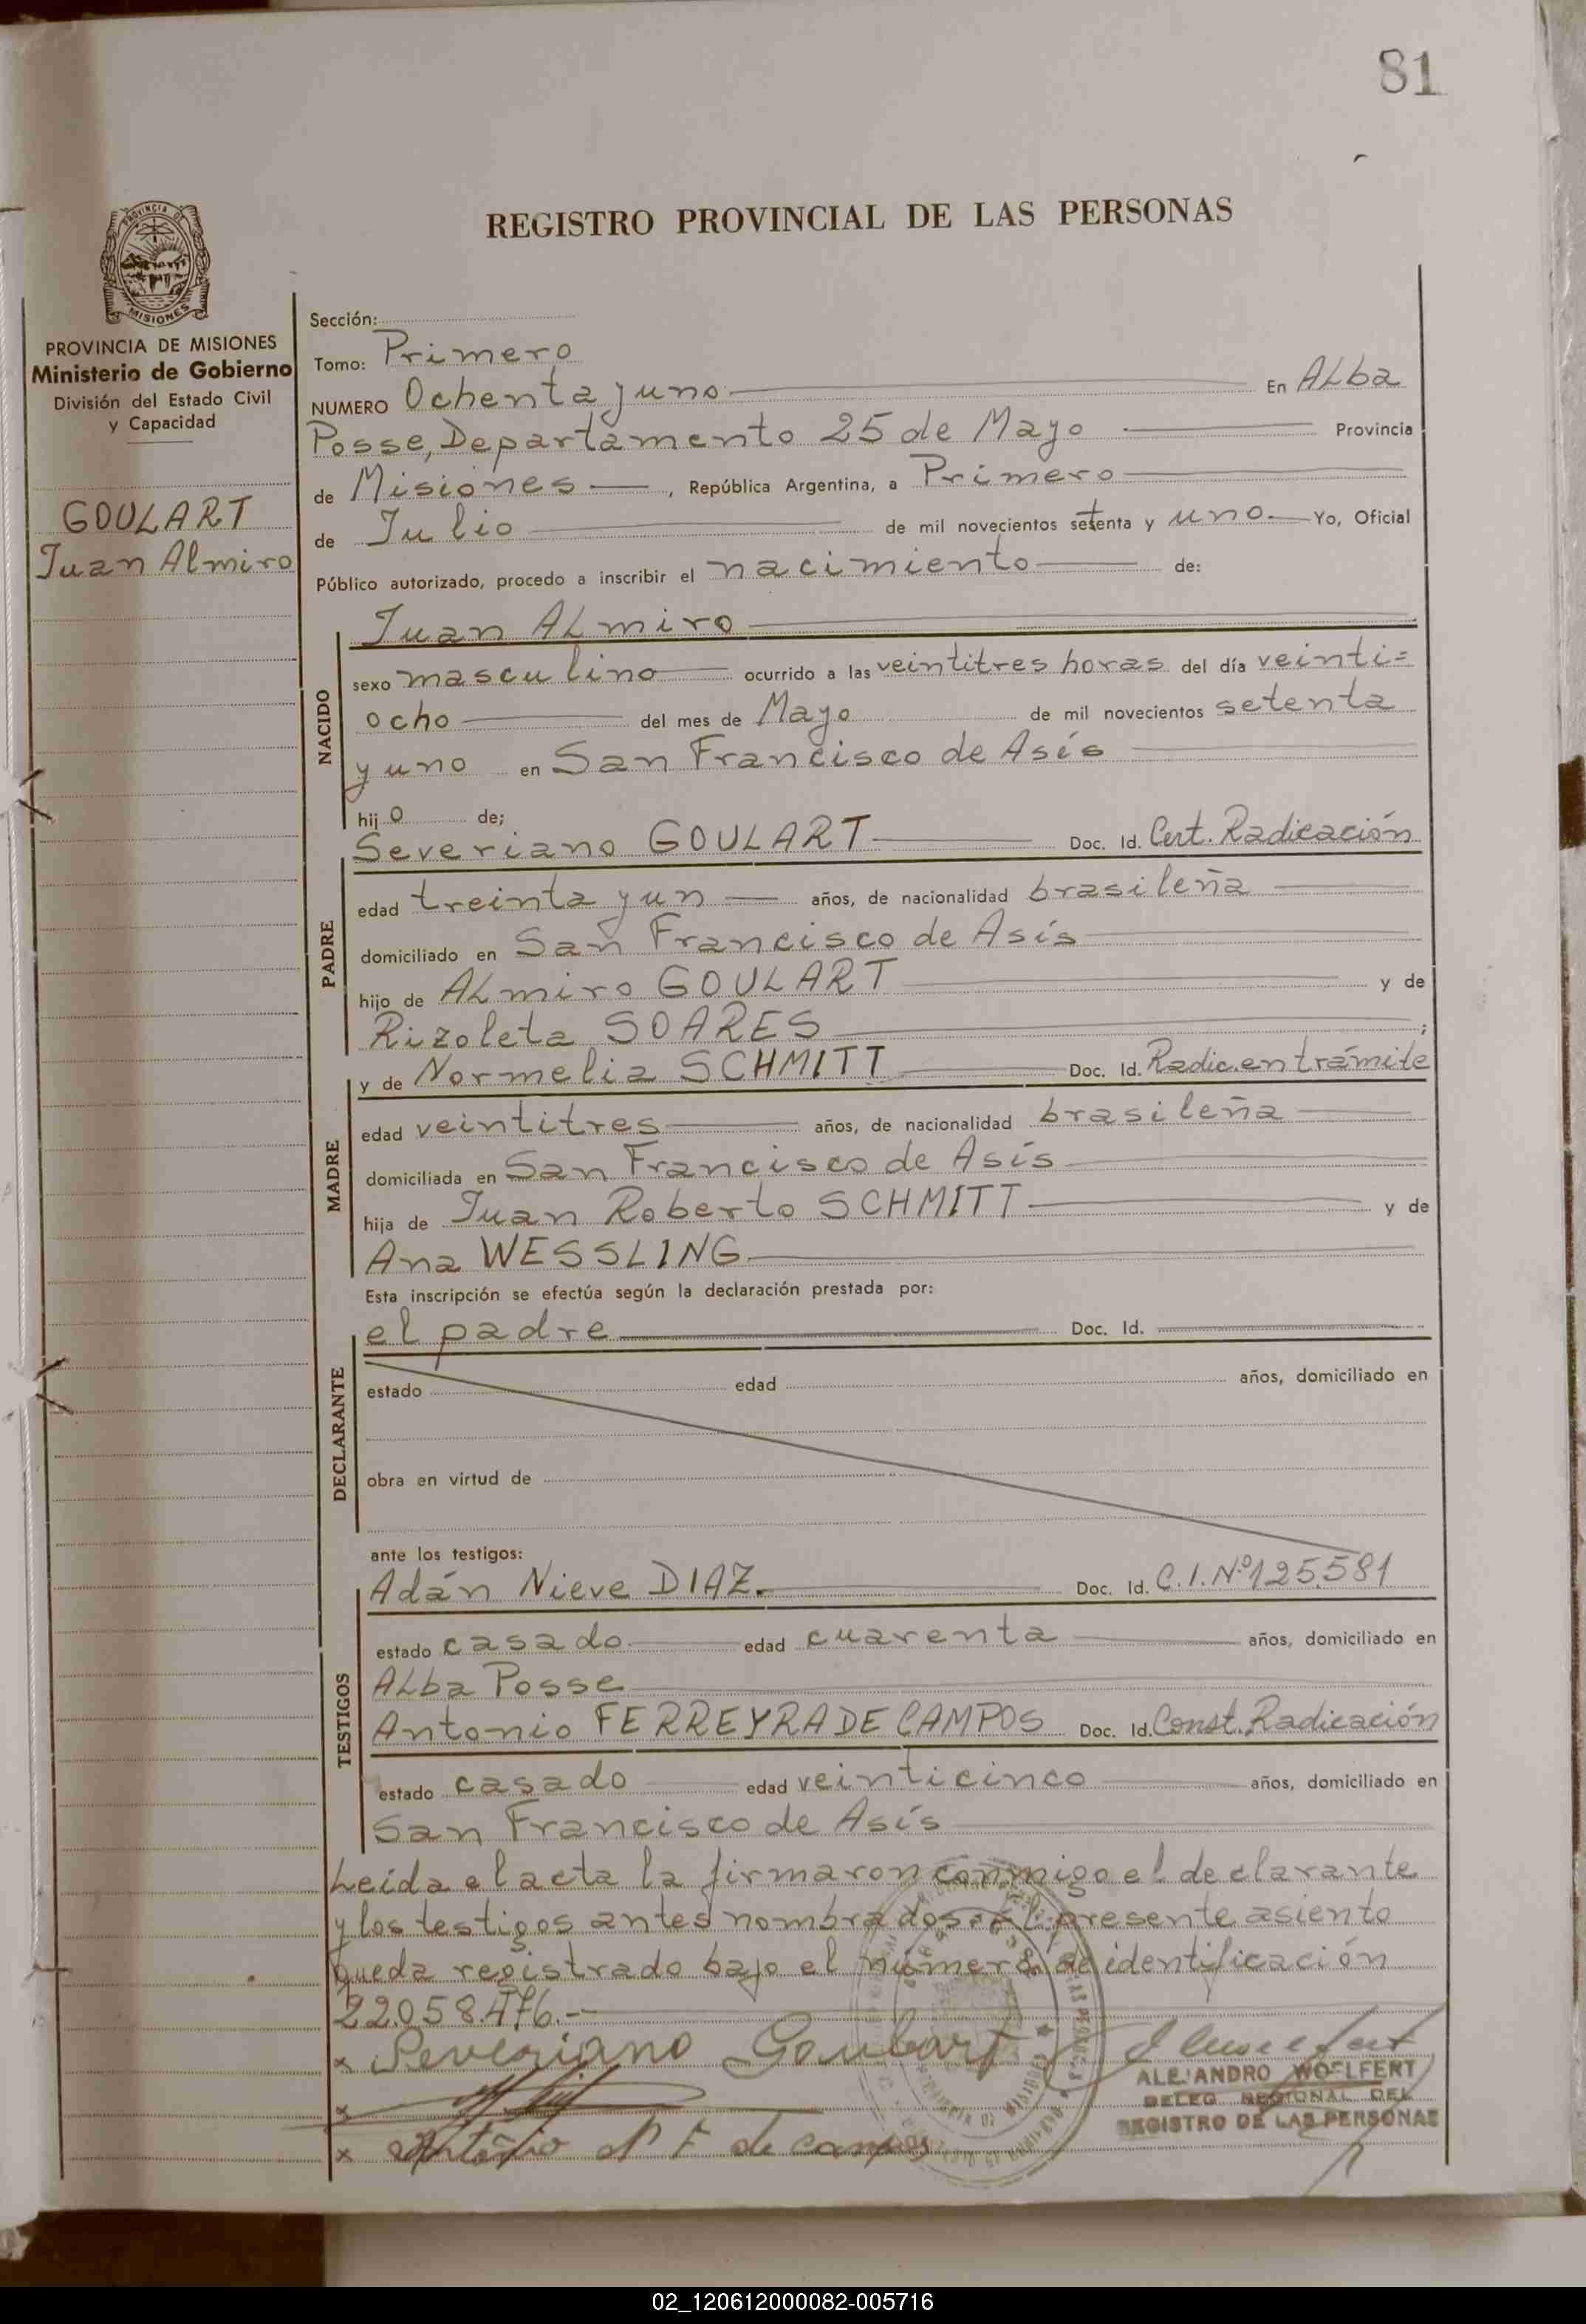 81
REGISTRO PROVINCIAL DE LAS PERSONAS
PROVINCIA DE
MISIONES
PROVINCIA DE MISIONES
Ministerio de Gobierno
División del Estado Civil
y Capacidad
GOULART
Juan Almiro
Sección:
Tomo: Primero
NUMERO Ochenta y uno En Alba
Posse, Departamento 25 de Mayo Provincia
de Misiones, República Argentina, a Primero
de Julio de mil novecientos setenta y uno Yo, Oficial
Público autorizado, procedo a inscribir el nacimiento de:
NACIDO
Juan Almiro
sexo masculino ocurrido a las veintitres horas del día veinti=
ocho del mes de Mayo de mil novecientos setenta
y uno en San Francisco de Asís
hijo de;
PADRE
Severiano GOULART Doc. Id. Cert. Radicación
edad treinta y un años, de nacionalidad brasileña
domiciliado en San Francisco de Asís
hijo de Almiro GOULART y de
Rizoleta SOARES ;
MADRE
y de Normelia SCHMITT Doc. Id. Radic. en trámite
edad veintitres años, de nacionalidad brasileña
domiciliada en San Francisco de Asís
hija de Juan Roberto SCHMITT y de
Ana WESSLING
Esta inscripción se efectúa según la declaración prestada por:
DECLARANTE
el padre Doc. Id.
estado edad años, domiciliado en
obra en virtud de
ante los testigos:
TESTIGOS
Adán Nieve DIAZ. Doc. Id. C.I. Nº 125.581
estado casado edad cuarenta años, domiciliado en
Alba Posse
Antonio FERREYRA DE CAMPOS Doc. Id. Const. Radicación
estado casado edad veinticinco años, domiciliado en
San Francisco de Asís
Leída el acta la firmaron conmigo el declarante
y los testigos antes nombrados. El presente asiento
queda registrado bajo el número de identificación
22.058.476.-
x Severiano Goulart
ALEJANDRO WOELFERT
DELEG REGIONAL DEL
REGISTRO DE LAS PERSONAS
x
x Antônio F de campos
02_120612000082-005716